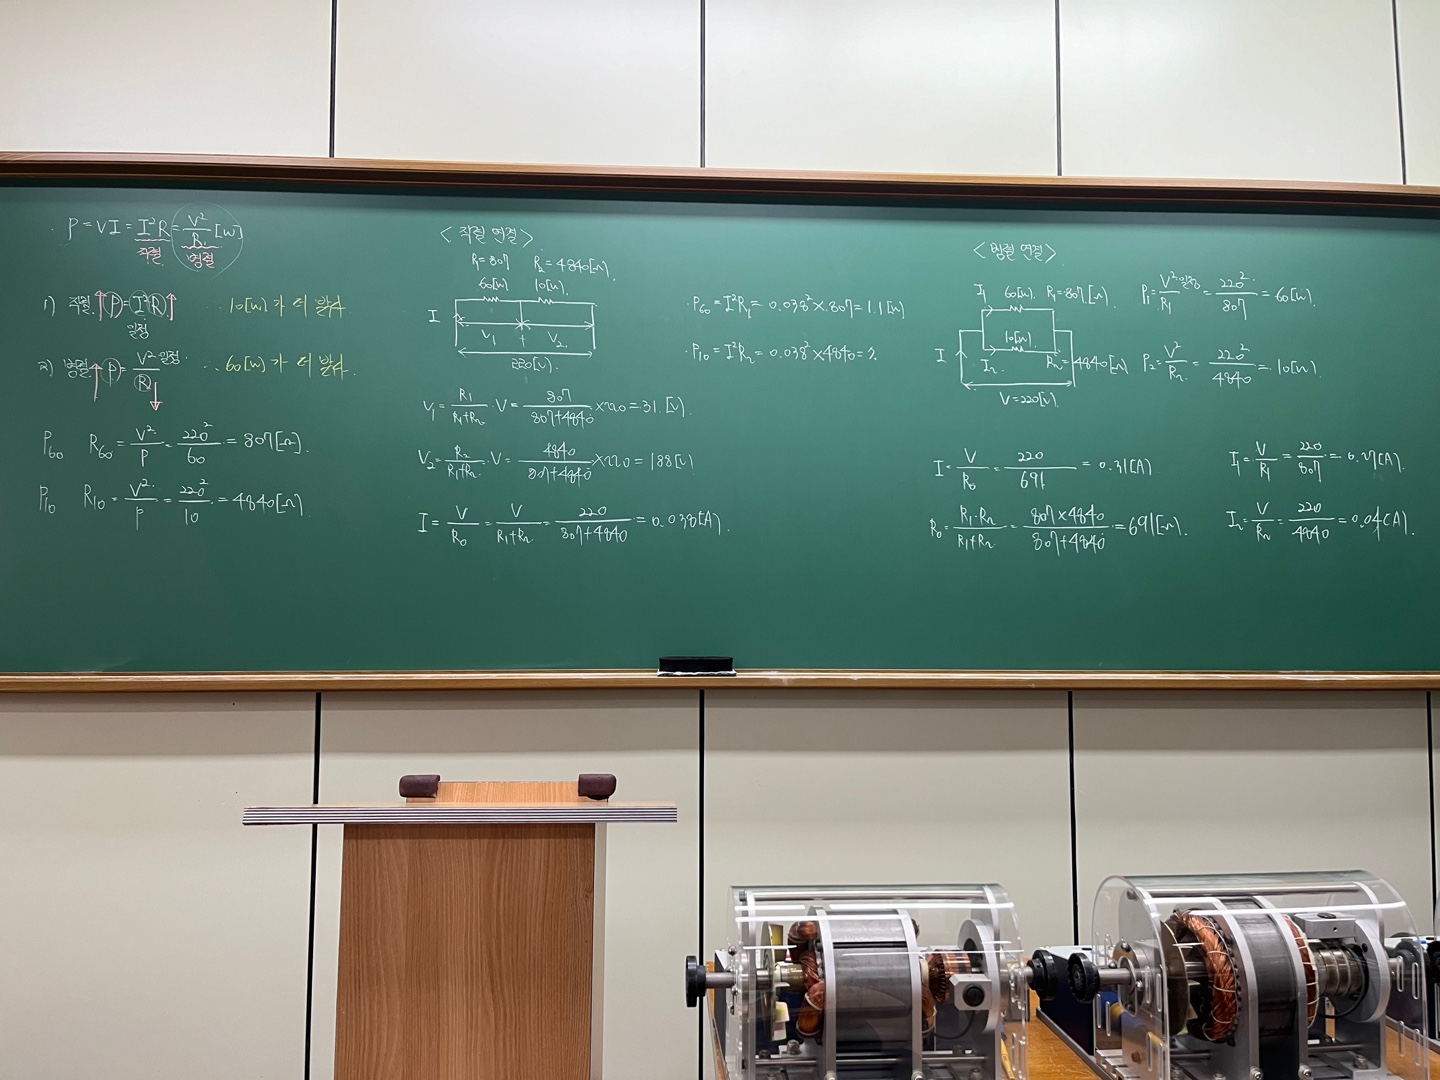 P = VI = I²R = V²/R [W]
직렬 병렬
1) 직렬 ↑ P = I²R ↑ ... 10[W]가 더 밝다
일정
2) 병렬 ↑ P = V² 일정/R ↓ ... 60[W]가 더 밝다.
P60 R60 = V²/P = 220²/60 = 807[Ω].
P10 R10 = V²/P = 220²/10 = 4840[Ω].
< 직렬 연결 >
R1=807 R2=4840[Ω].
60[W] 10[W].
I
V1 + V2
220[V].
V1 = R1/(R1+R2) · V = 807/(807+4840) × 220 = 31.[V].
V2 = R2/(R1+R2) · V = 4840/(807+4840) × 220 = 188[V]
I = V/R0 = V/(R1+R2) = 220/(807+4840) = 0.038[A].
· P60 = I²R1 = 0.038² × 807 = 1.1[W]
· P10 = I²R2 = 0.038² × 4840 = 7.
< 병렬 연결 >
I1 60[W]. R1=807.[Ω]
10[W].
I I2 R2=4840[Ω]
V=220[V].
P1 = V² 일정/R1 = 220²/807 = 60[W].
P2 = V²/R2 = 220²/4840 = 10[W].
I = V/R0 = 220/691 = 0.31[A]
R0 = R1·R2/(R1+R2) = 807×4840/(807+4840) = 691[Ω].
I1 = V/R1 = 220/807 = 0.27[A].
I2 = V/R2 = 220/4840 = 0.04[A].